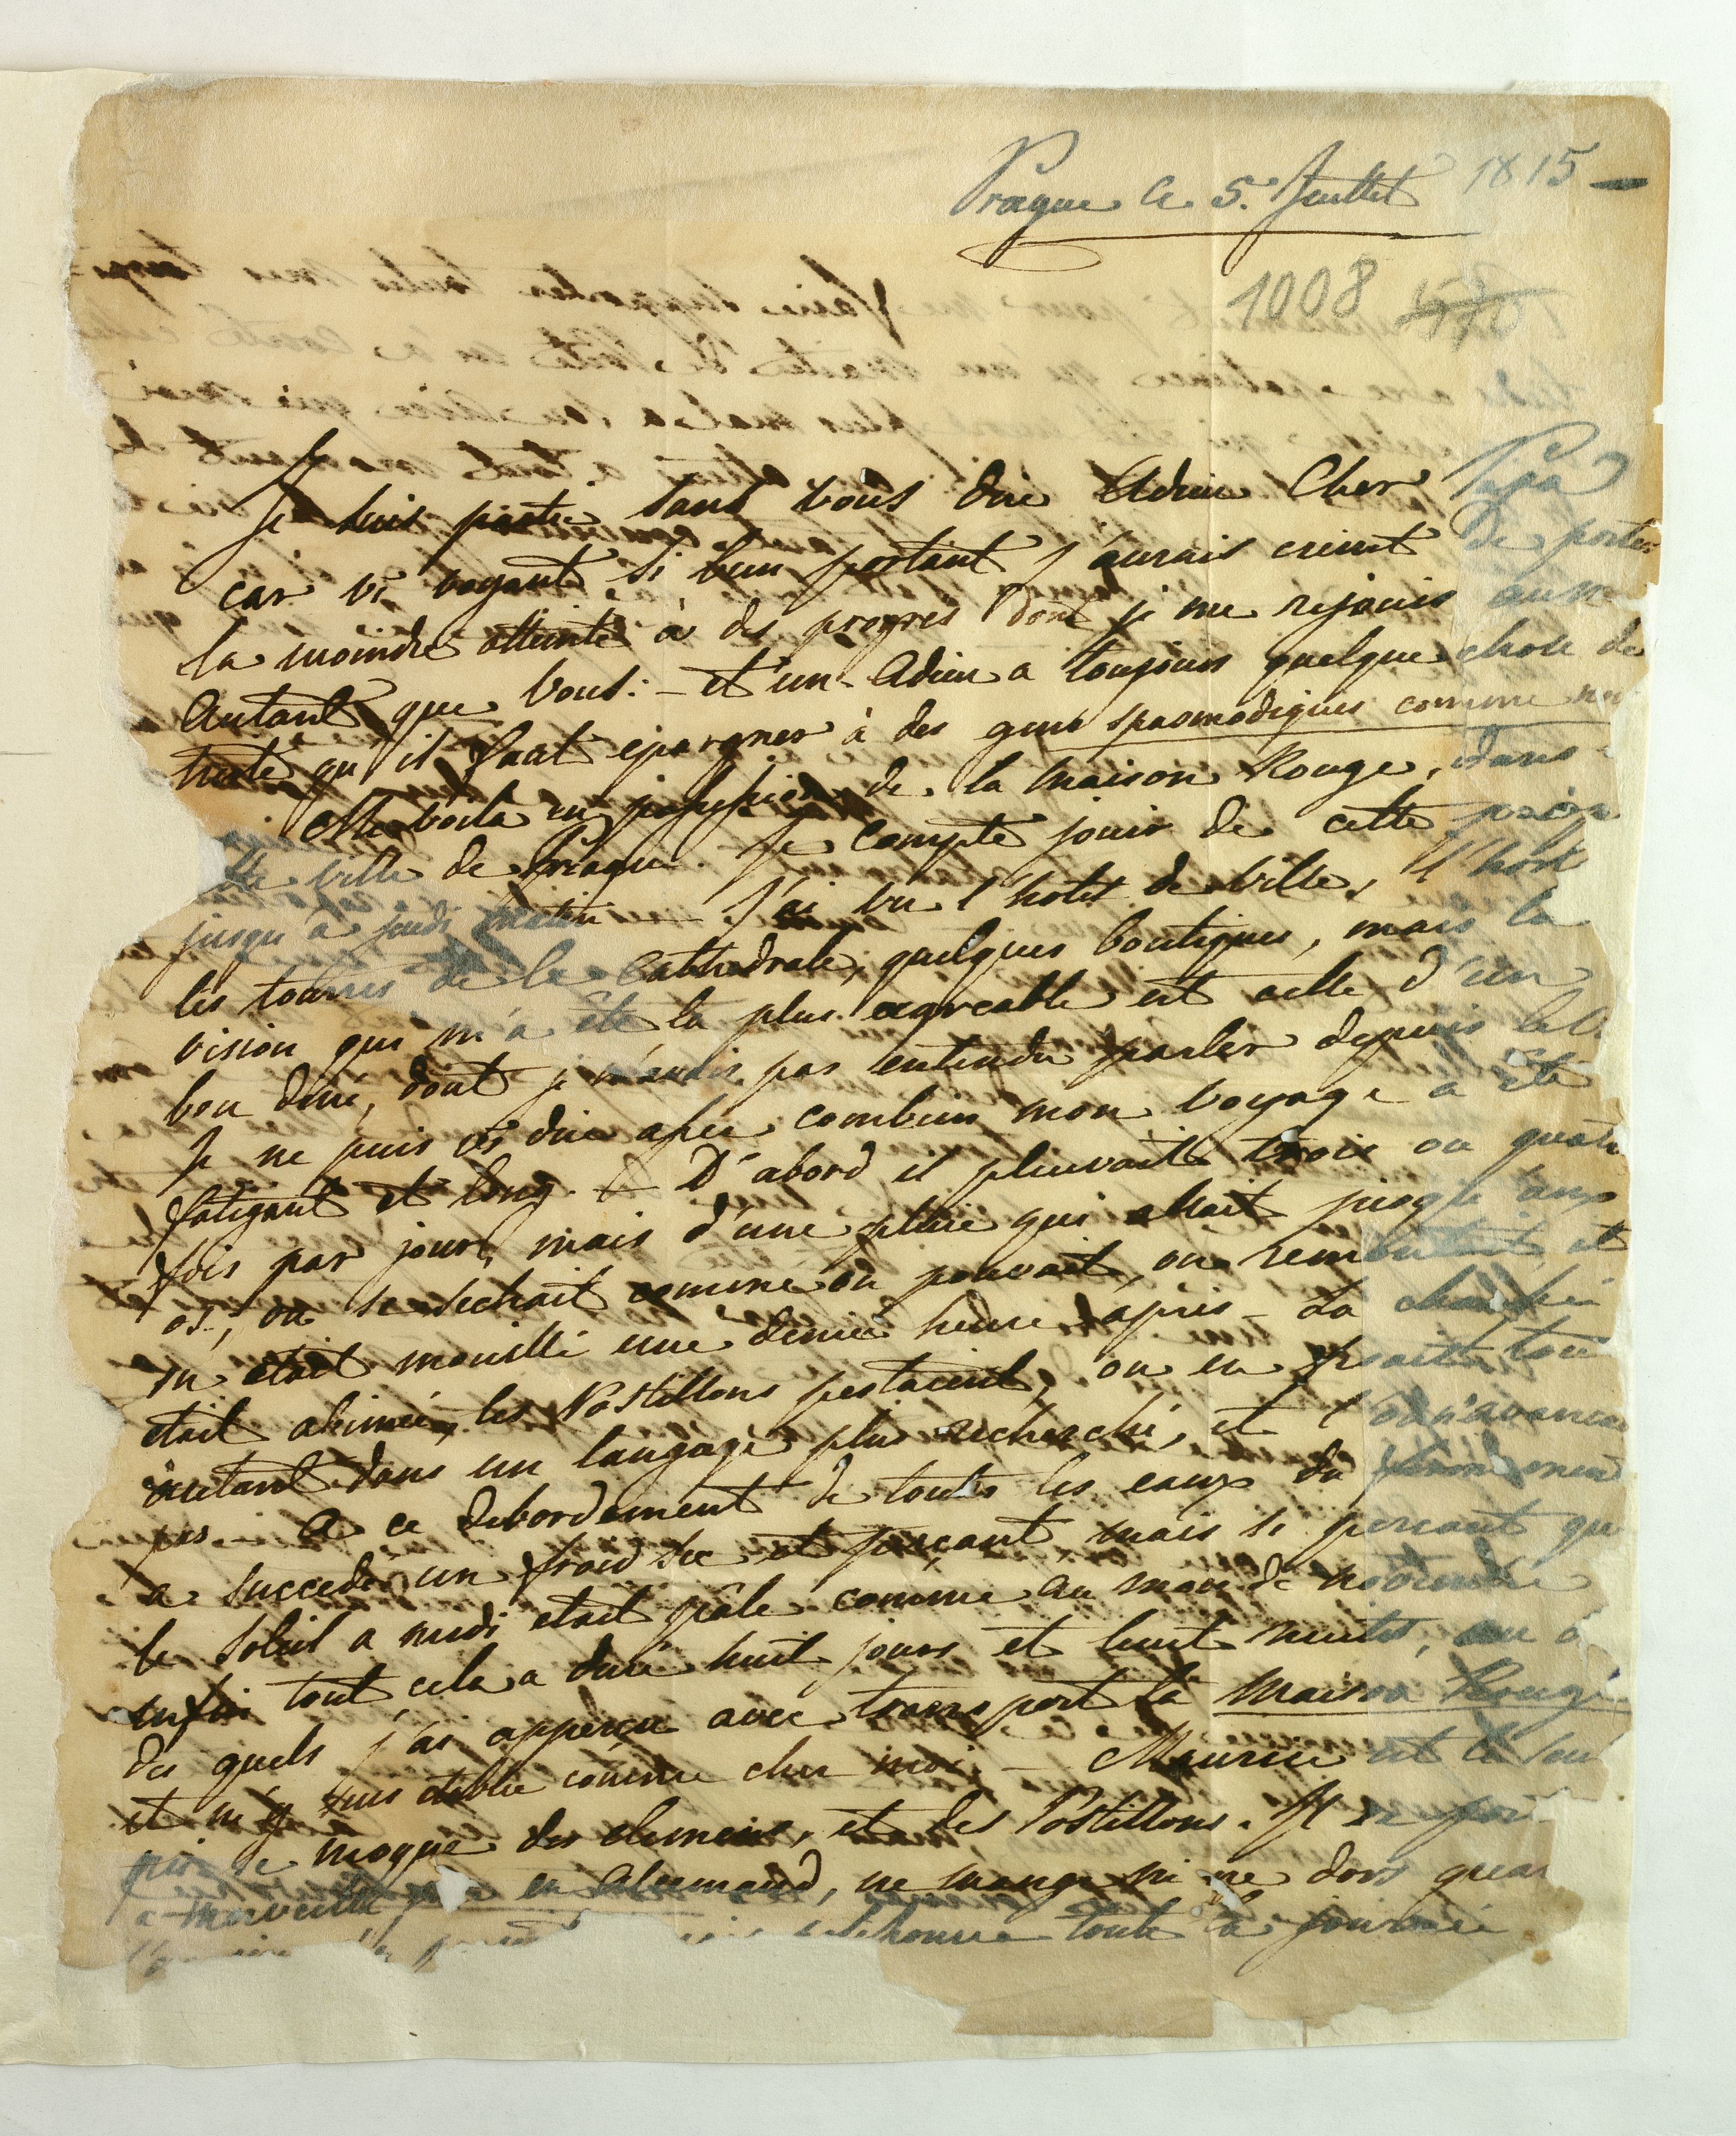 Prague le 5. Juillet 1815 —
1008
Je suis partie sans vous dire Adieu Cher Papa
car vs voyant si bien portant j'aurais craint de porter
la moindre atteinte à des progres dont je me rejouis aussi
Autant que Vous: — et un Adieu a toujours quelque chose de
triste qu'il faut epargner à des gens spasmodiques comme
Me voila en possession de la Maison Rouge, dans
ville de Prague. Je compte jouir de cette
jusqu'a jeudi matin — J'ai vu l'hotel de Ville,
les tourres de la Cathedrale, quelques boutiques, mais la
vision qui m'a été la plus agreable est celle d'un
bon diné, dont je n'avais pas entendu parler depuis
Je ne puis vs dire assez combien mon Voyage a été
fatigant et long. D'abord il pleuvait trois ou quatre
fois par jour, mais d'une pluie qui allait jusqu'aux
os; on se sechait comme on pouvait, on remontait et
on était mouillé une demie heure après — La chaussée
était abimée, les Postillons pestaient, on en disait tout
autant dans un langage plus recherché, et l'on n'avancait
pas. A ce debordement de toutes les eaux du firmament
a succedé un froid sec et perçant mais si percant que
le Soleil a midi était pâle comme au mois de novembre
enfin tout cela a duré huit jours et huit nuits, au
des quels j'ai apperçu avec transport la Maison Rouge
et m'y suis etablie comme chez moi. — Maurice est le seul
qui se moque des elemens, et des Postillons. Il se
a merveille en Alemand, ne mange ni ne dors
toute la journée